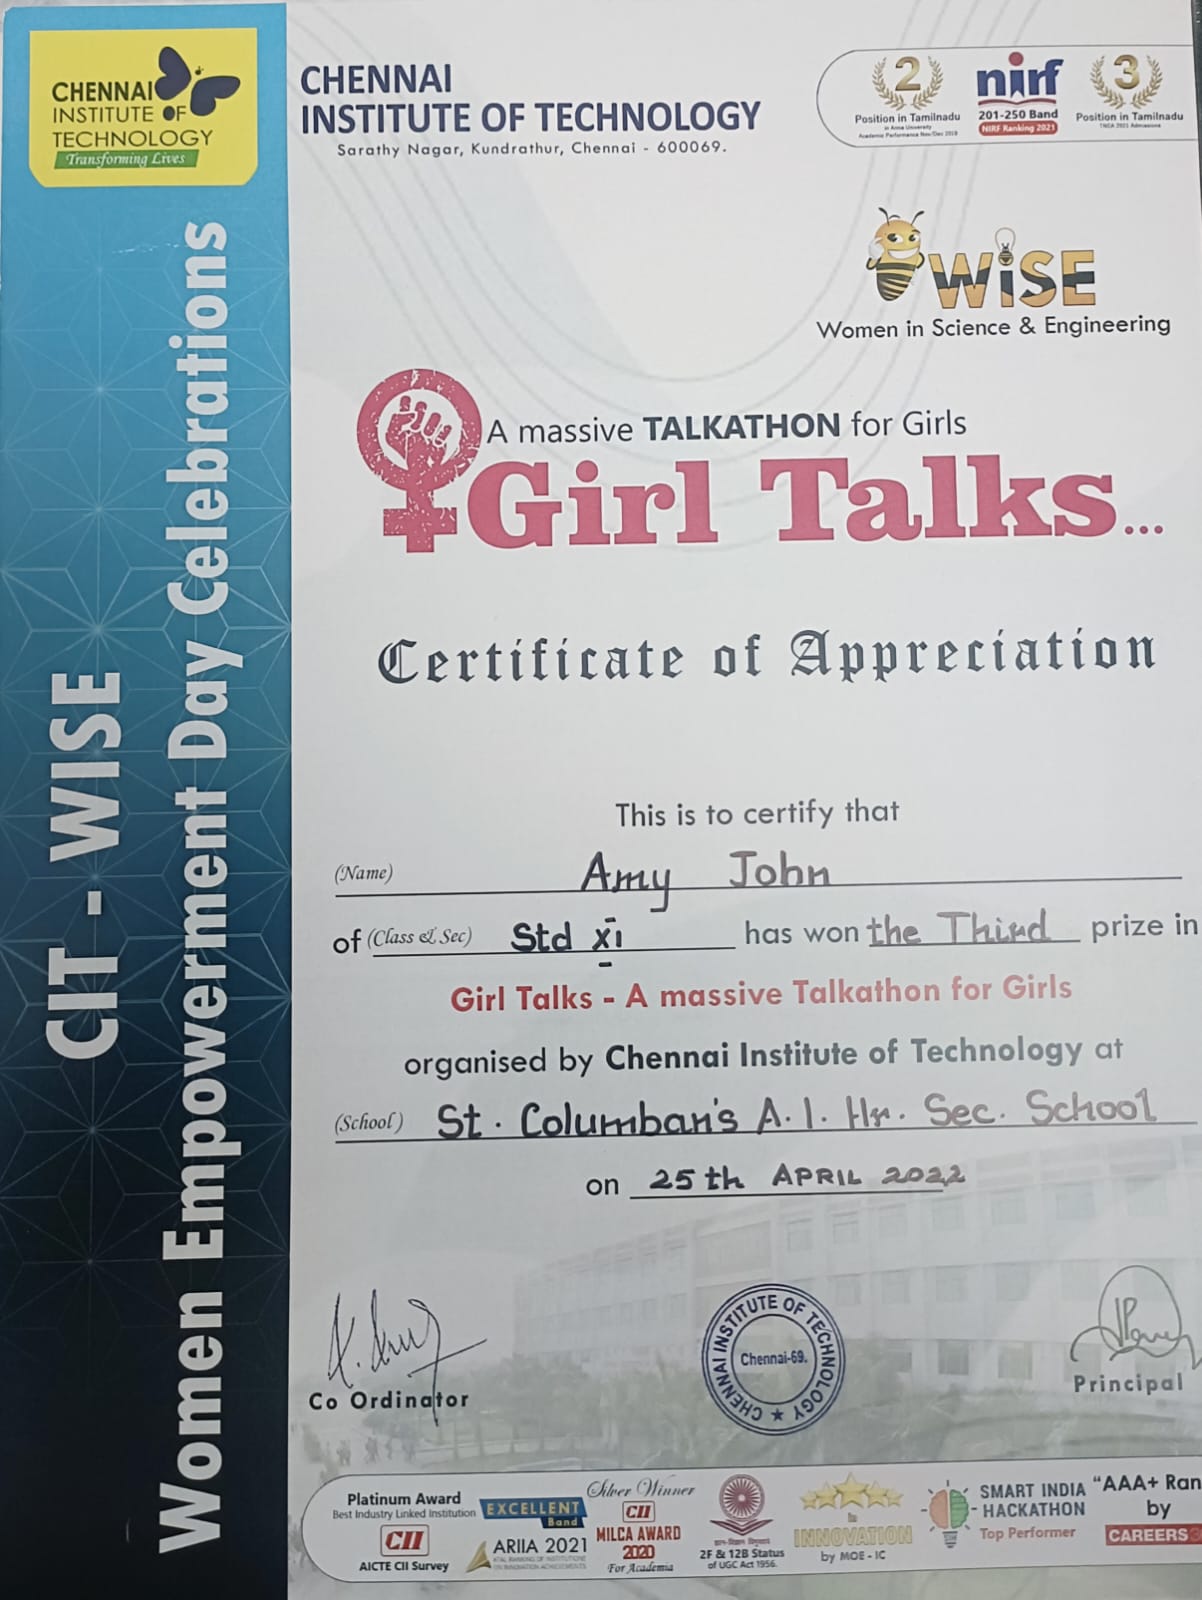 CHENNAI
INSTITUTE OF
TECHNOLOGY
Transforming Lives
CIT - WISE
Women Empowerment Day Celebrations
CHENNAI
INSTITUTE OF TECHNOLOGY
Sarathy Nagar, Kundrathur, Chennai - 600069.
2
Position in Tamilnadu
in Anna University
Academic Performance Nov/Dec 2019
nirf
201-250 Band
NIRF Ranking 2021
3
Position in Tamilnadu
TNEA 2021 Admissions
WiSE
Women in Science & Engineering
A massive TALKATHON for Girls
Girl Talks...
Certificate of Appreciation
This is to certify that
(Name) Amy John
of (Class & Sec) Std XI has won the Third prize in
Girl Talks - A massive Talkathon for Girls
organised by Chennai Institute of Technology at
(School) St. Columban's A.I. Hr. Sec. School
on 25th APRIL 2022
Co Ordinator
CHENNAI INSTITUTE OF TECHNOLOGY
Chennai-69.
Principal
Platinum Award
Best Industry Linked Institution
CII
AICTE CII Survey
EXCELLENT
Band
ARIIA 2021
ATAL RANKING OF INSTITUTIONS
ON INNOVATION ACHIEVEMENTS
Silver Winner
CII
MILCA AWARD
2020
For Academia
ज्ञान-विज्ञान विमुक्तये
2F & 12B Status
of UGC Act 1956.
in
INNOVATION
by MOE - IC
SMART INDIA
HACKATHON
Top Performer
"AAA+ Ran
by
CAREERS3